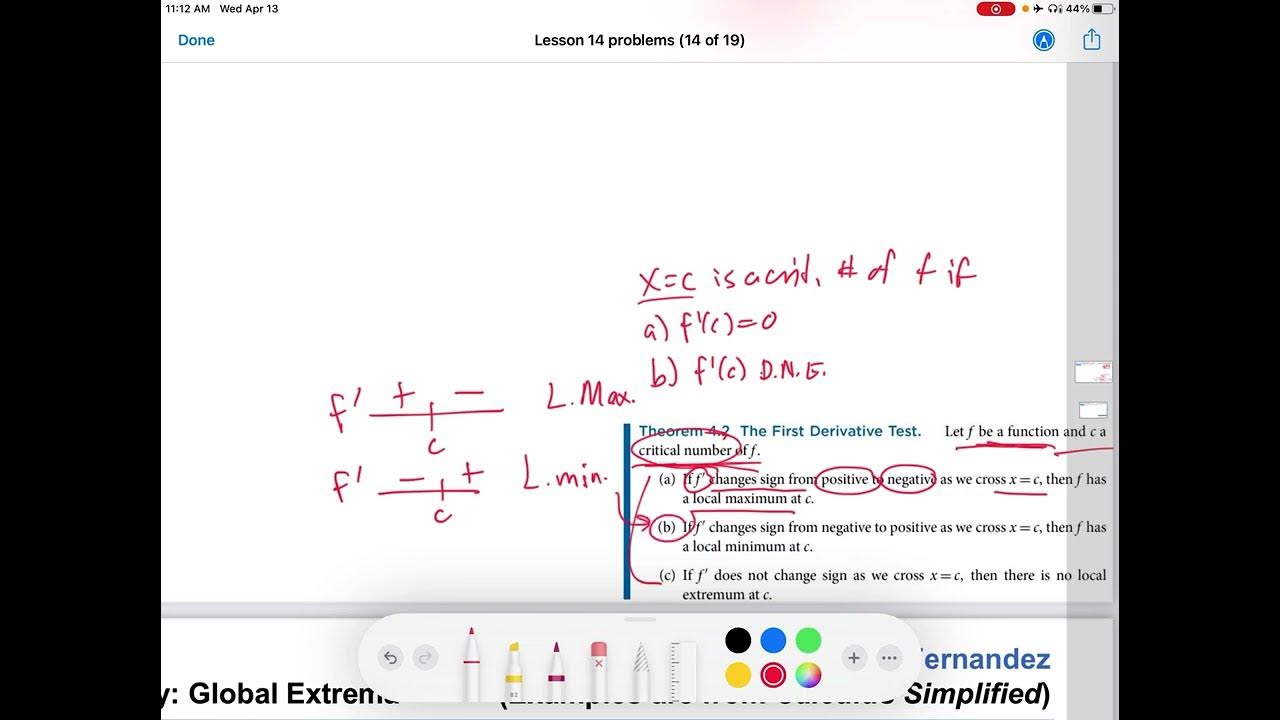 11:12 AM Wed Apr 13
44%
Done
Lesson 14 problems (14 of 19)
x=c is a crit. # of f if
a) f'(c)=0
b) f'(c) D.N.E.
f' + - L. Max.
c
f' - + L. min.
c
Theorem 4.2 The First Derivative Test. Let f be a function and c a
critical number of f.
(a) If f' changes sign from positive to negative as we cross x = c, then f has
a local maximum at c.
(b) If f' changes sign from negative to positive as we cross x = c, then f has
a local minimum at c.
(c) If f' does not change sign as we cross x = c, then there is no local
extremum at c.
ernandez
y: Global Extrema Simplified)